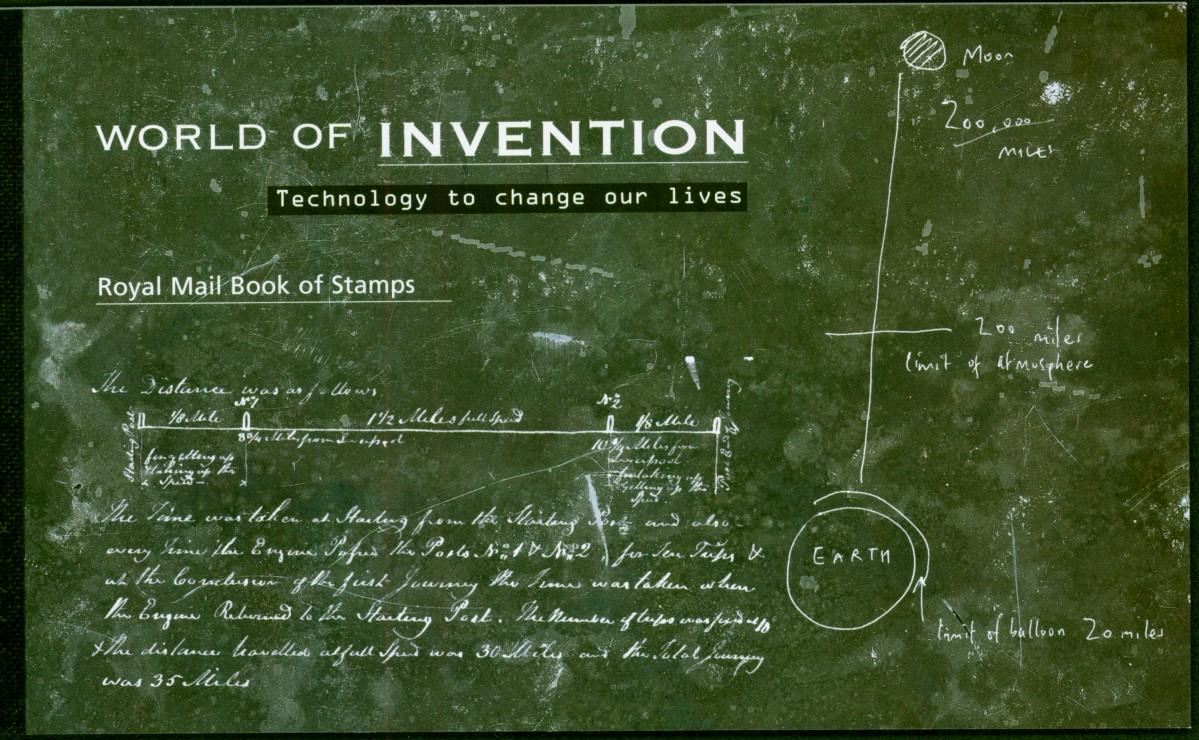 WORLD OF INVENTION
Technology to change our lives
Royal Mail Book of Stamps
Moon
200,000
MILES
200 miles
limit of atmosphere
EARTH
limit of balloon 20 miles
The Distance was as follows
Starting Post
1/8 Mile
No 1
1 1/2 Miles full Speed
No 2
1/8 Mile
for getting up
Speed
The Time was taken at Starting from the Starting Post and also
every Time the Engine Passed the Posts No 1 & No 2, for Ten Trips &
at the Conclusion of the first Journey the Time was taken when
the Engine Returned to the Starting Post. The Number of trips was
& the distance travelled at full Speed was 30 Miles and the Total Journey
was 35 Miles